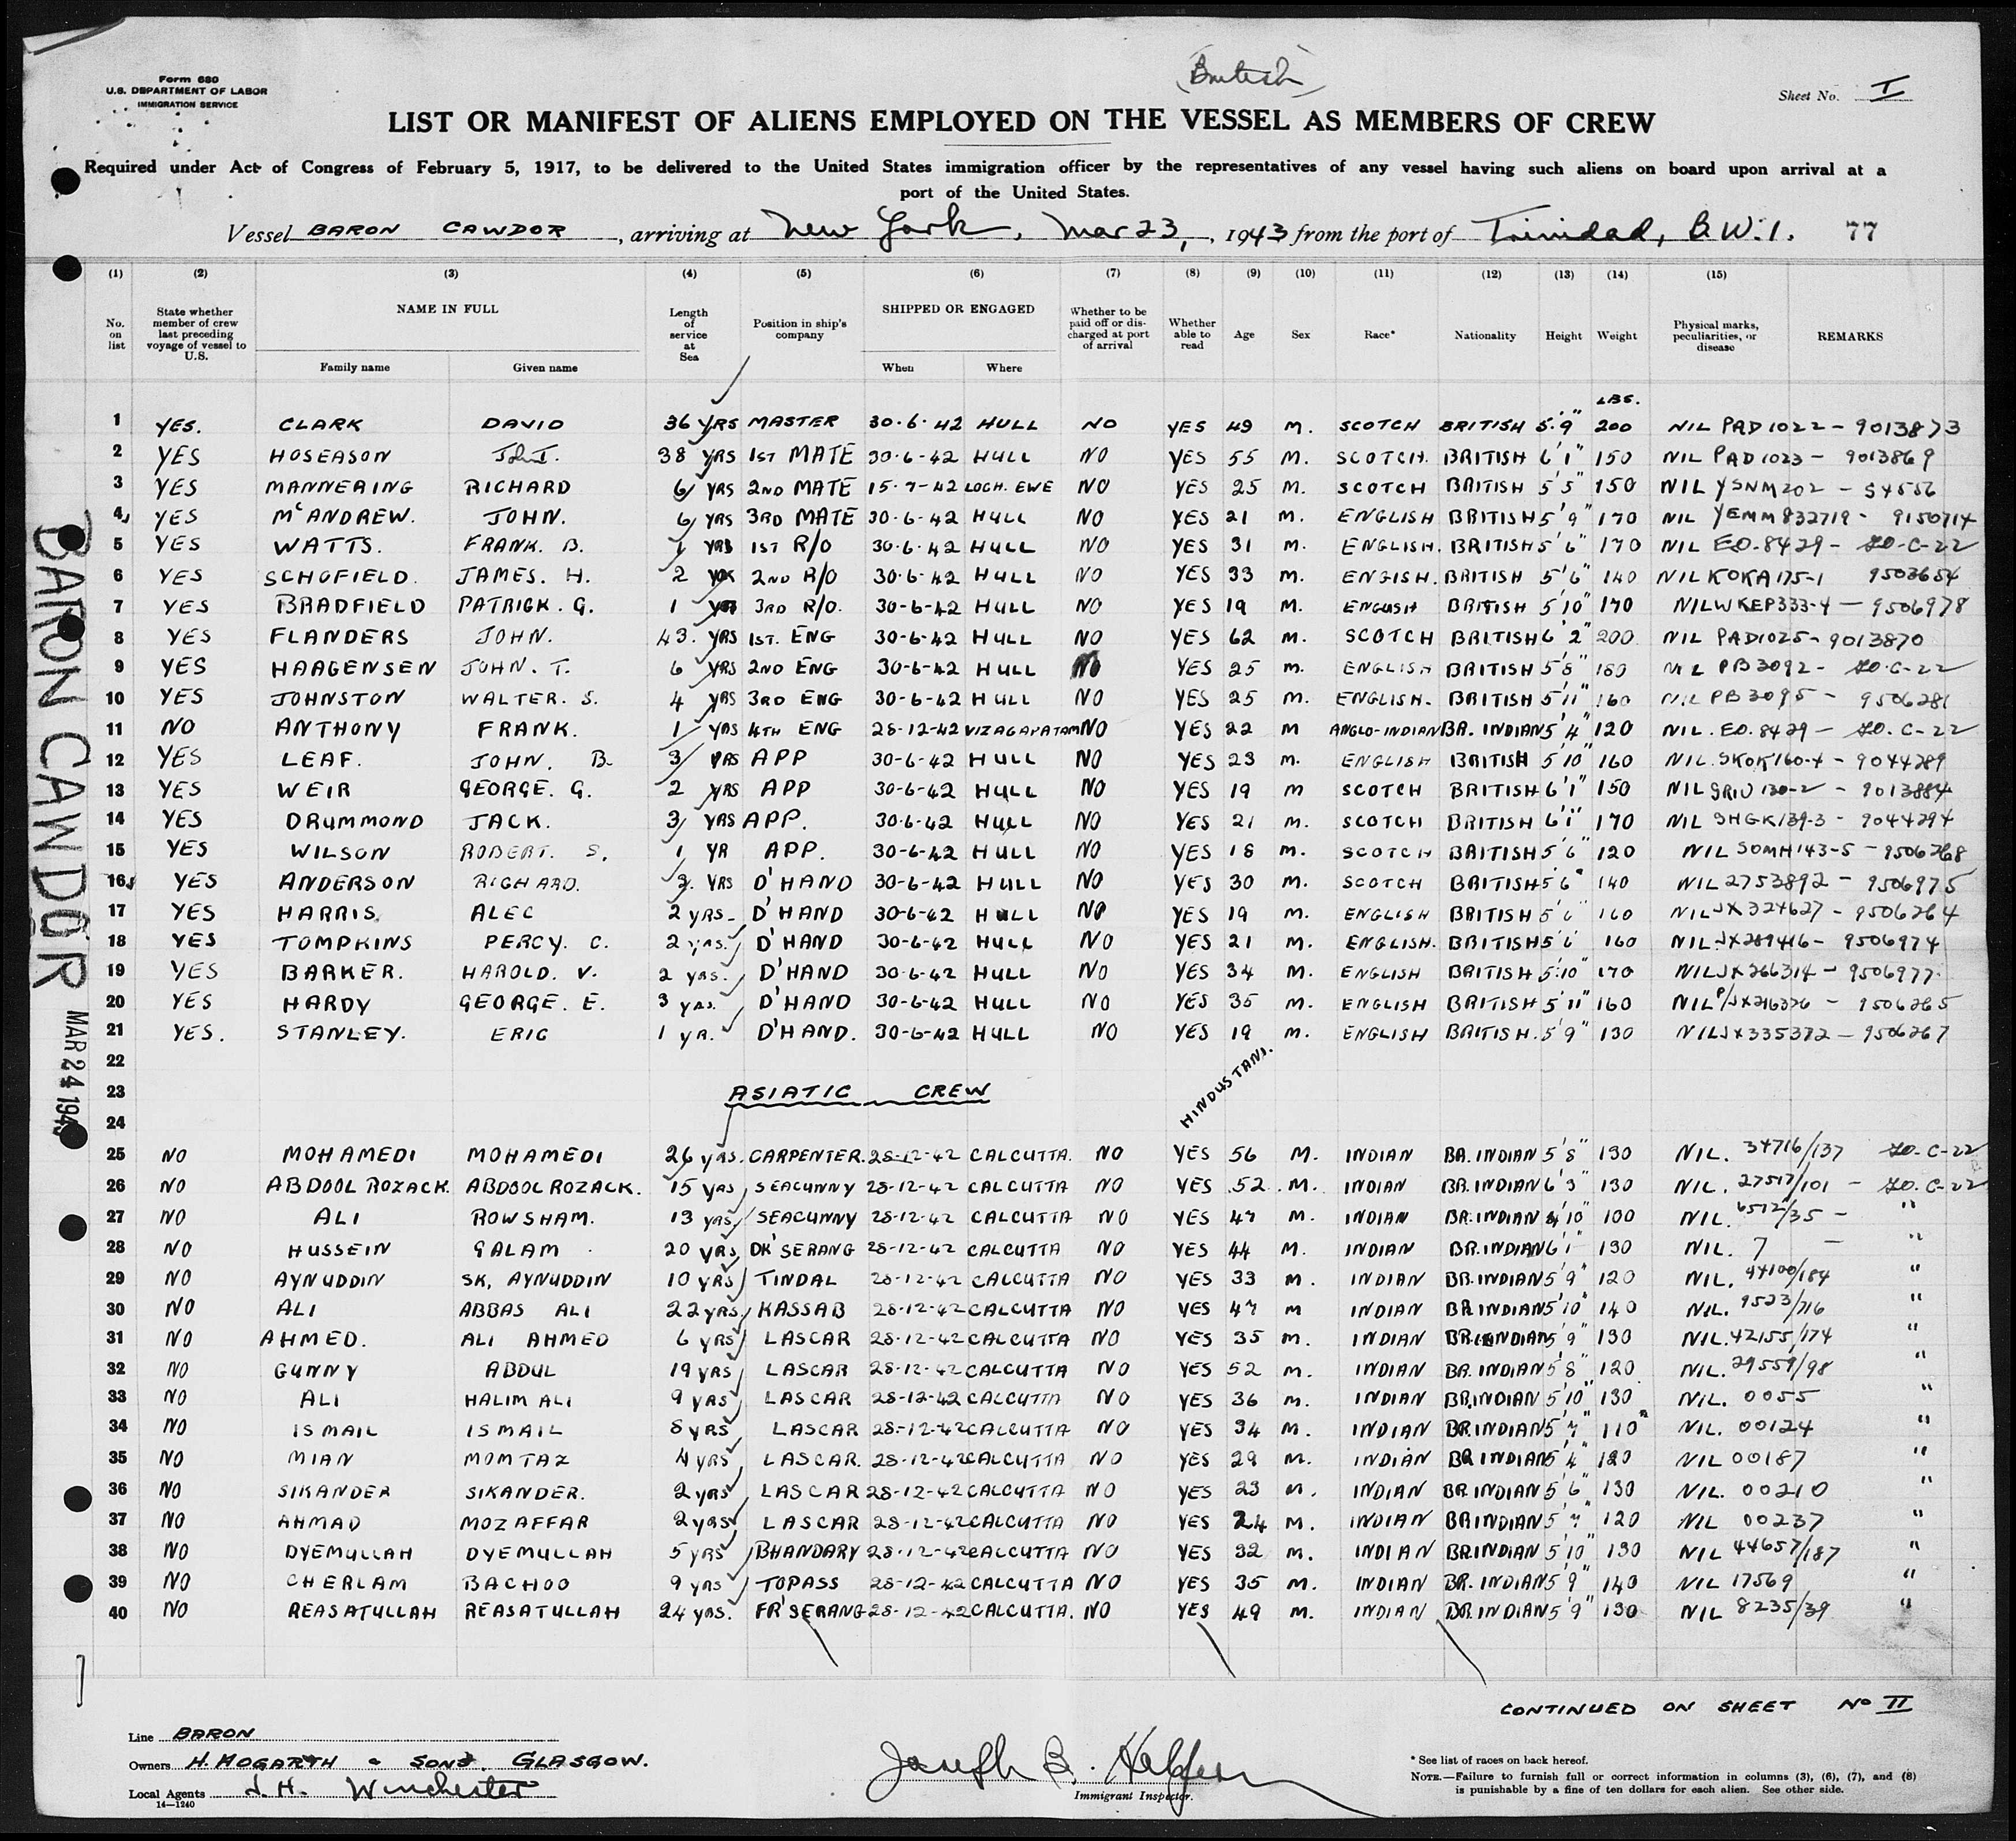 Form 680
U.S. DEPARTMENT OF LABOR
IMMIGRATION SERVICE
(British)
Sheet No. I
LIST OR MANIFEST OF ALIENS EMPLOYED ON THE VESSEL AS MEMBERS OF CREW
Required under Act of Congress of February 5, 1917, to be delivered to the United States immigration officer by the representatives of any vessel having such aliens on board upon arrival at a
port of the United States.
Vessel BARON CAWDOR, arriving at New York, Mar 23, 1943 from the port of Trinidad, B.W.I. 77
(1) (2) (3) (4) (5) (6) (7) (8) (9) (10) (11) (12) (13) (14) (15)
No. on list
State whether member of crew last preceding voyage of vessel to U.S.
NAME IN FULL
Family name Given name
Length of service at Sea
Position in ship's company
SHIPPED OR ENGAGED
When Where
Whether to be paid off or discharged at port of arrival
Whether able to read
Age Sex Race* Nationality Height Weight
Physical marks, peculiarities, or disease
REMARKS
LBS.
1 YES. CLARK DAVID 36 YRS MASTER 30.6.42 HULL NO YES 49 M. SCOTCH BRITISH 5'9" 200 NIL PAD1022 - 9013873
2 YES HOSEASON John T. 38 YRS 1ST MATE 30-6-42 HULL NO YES 55 M. SCOTCH. BRITISH 6'1" 150 NIL PAD1023 - 9013869
3 YES MANNERING RICHARD 6 YRS 2ND MATE 15-7-42 LOCH. EWE NO YES 25 M. SCOTCH BRITISH 5'5" 150 NIL YSNM202 -
4 YES McANDREW. JOHN. 6 YRS 3RD MATE 30-6-42 HULL NO YES 21 M. ENGLISH BRITISH 5'9" 170 NIL YEMM832719 - 9150714
5 YES WATTS. FRANK. B. 1 YRS 1ST R/O 30.6.42 HULL NO YES 31 M. ENGLISH. BRITISH 5'6" 170 NIL EO.8429 - C-22
6 YES SCHOFIELD. JAMES. H. 2 2ND R/O 30.6.42 HULL NO YES 33 M. ENGISH. BRITISH 5'6" 140 NIL KOKA175-1 9503654
7 YES BRADFIELD PATRICK. G. 1 3RD R/O. 30-6-42 HULL NO YES 19 M. ENGLISH BRITISH 5'10" 170 NIL WKEP333-4 - 9506978
8 YES FLANDERS JOHN. 43. YRS 1ST. ENG 30-6-42 HULL NO YES 62 M. SCOTCH BRITISH 6'2" 200 NIL PAD1025 - 9013870
9 YES HAAGENSEN JOHN. T. 6 YRS 2ND ENG 30-6-42 HULL NO YES 25 M. ENGLISH BRITISH 5'8" 160 NIL PB3092 - C-22
10 YES JOHNSTON WALTER. S. 4 YRS 3RD ENG 30-6-42 HULL NO YES 25 M. ENGLISH. BRITISH 5'11" 160 NIL PB3095 - 9506281
11 NO ANTHONY FRANK. 1 YRS 4TH ENG 28-12-42 VIZAGAPATAM NO YES 22 M ANGLO-INDIAN BR. INDIAN 5'4" 120 NIL. EO.8429 - C-22
12 YES LEAF. JOHN. B. 3 YRS APP 30-6-42 HULL NO YES 23 M. ENGLISH BRITISH 5'10" 160 NIL. SKOK160-4 - 9044289
13 YES WEIR GEORGE. G. 2 YRS APP 30-6-42 HULL NO YES 19 M SCOTCH BRITISH 6'1" 150 NIL 9013884
14 YES DRUMMOND JACK. 3 YRS APP. 30.6.42 HULL NO YES 21 M. SCOTCH BRITISH 6'1" 170 NIL SHGK139-3 - 9044294
15 YES WILSON ROBERT. S. 1 YR APP. 30-6-42 HULL NO YES 18 M. SCOTCH BRITISH 5'6" 120 NIL SOMH143-5 - 9506268
16 YES ANDERSON RICHARD. 2. YRS D'HAND 30-6-42 HULL NO YES 30 M. SCOTCH BRITISH 5'6" 140 NIL 2753892 - 9506975
17 YES HARRIS ALEC 2 YRS- D'HAND 30-6-42 HULL NO YES 19 M. ENGLISH BRITISH 5'6" 160 NIL JX324627 - 9506264
18 YES TOMPKINS PERCY. C. 2 YRS. D'HAND 30-6-42 HULL NO YES 21 M. ENGLISH. BRITISH 5'6' 160 NIL JX289416 - 9506974
19 YES BARKER. HAROLD. V. 2 YRS. D'HAND 30-6-42 HULL NO YES 34 M. ENGLISH BRITISH 5'10" 170 NIL JX266314 - 9506977
20 YES HARDY GEORGE. E. 3 YRS. D'HAND 30-6-42 HULL NO YES 35 M. ENGLISH BRITISH 5'11" 160 NIL P/JX216376 - 9506265
21 YES. STANLEY. ERIC 1 YR. D'HAND. 30-6-42 HULL NO YES 19 M. ENGLISH BRITISH. 5'9" 130 NIL JX335372 - 9506267
22
23 ASIATIC CREW HINDUSTANI.
24
25 NO MOHAMEDI MOHAMEDI 26 YRS. CARPENTER. 28-12-42 CALCUTTA. NO YES 56 M. INDIAN BR. INDIAN 5'8" 130 NIL. 34716/137 C-22
26 NO ABDOOL ROZACK. ABDOOL ROZACK. 15 YRS SEACUNNY 28-12-42 CALCUTTA NO YES 52 M. INDIAN BR. INDIAN 6'3" 130 NIL. 27517/101 - C-22
27 NO ALI ROWSHAM. 13 YRS SEACUNNY 28-12-42 CALCUTTA NO YES 47 M. INDIAN BR. INDIAN 4'10" 100 NIL. 6572/35 - "
28 NO HUSSEIN GALAM. 20 YRS DK'SERANG 28-12-42 CALCUTTA NO YES 44 M. INDIAN BR. INDIAN 6'1" 130 NIL. 7 - "
29 NO AYNUDDIN SK, AYNUDDIN 10 YRS TINDAL 28-12-42 CALCUTTA NO YES 33 M. INDIAN BR. INDIAN 5'9" 120 NIL. 44100/184 "
30 NO ALI ABBAS ALI 22 YRS KASSAB 28-12-42 CALCUTTA NO YES 47 M INDIAN BR INDIAN 5'10" 140 NIL. 9523/716 "
31 NO AHMED. ALI AHMED 6 YRS LASCAR 28-12-42 CALCUTTA NO YES 35 M. INDIAN BR. INDIAN 5'9" 130 NIL. 42155/174 "
32 NO GUNNY ABDUL 19 YRS LASCAR 28-12-42 CALCUTTA NO YES 52 M. INDIAN BR. INDIAN 5'8" 120 NIL. 29559/98 "
33 NO ALI HALIM ALI 9 YRS LASCAR 28-12-42 CALCUTTA NO YES 36 M. INDIAN BR. INDIAN 5'10" 130 NIL. 0055 "
34 NO ISMAIL ISMAIL 8 YRS LASCAR 28-12-42 CALCUTTA NO YES 34 M. INDIAN BR. INDIAN 5'7" 110 NIL. 00124 "
35 NO MIAN MOMTAZ 4 YRS LASCAR. 28-12-42 CALCUTTA NO YES 29 M. INDIAN BR INDIAN 5'4" 120 NIL 00187 "
36 NO SIKANDER SIKANDER. 2 YRS LASCAR 28-12-42 CALCUTTA NO YES 23 M. INDIAN BR. INDIAN 5'6" 130 NIL. 00210 "
37 NO AHMAD MOZAFFAR 2 YRS LASCAR 28-12-42 CALCUTTA NO YES 24 M. INDIAN BR INDIAN 5'7" 120 NIL 00237 "
38 NO DYEMULLAH DYEMULLAH 5 YRS BHANDARY 28-12-42 CALCUTTA NO YES 32 M. INDIAN BR INDIAN 5'10" 130 NIL 44657/187 "
39 NO CHERLAM BACHOO 9 YRS TOPASS 28-12-42 CALCUTTA NO YES 35 M. INDIAN BR. INDIAN 5'9" 140 NIL 17569 "
40 NO REASATULLAH REASATULLAH 24 YRS. FR'SERANG 28-12-42 CALCUTTA. NO YES 49 M. INDIAN BR. INDIAN 5'9" 130 NIL 8235/39 "
BARON CAWDOR
MAR 24 194
CONTINUED ON SHEET No II
Line BARON
Owners H. HOGARTH & SONS. GLASGOW.
Local Agents J.H. Winchester
14-1240
Joseph B.
Immigrant Inspector.
* See list of races on back hereof.
NOTE.—Failure to furnish full or correct information in columns (3), (6), (7), and (8)
is punishable by a fine of ten dollars for each alien. See other side.